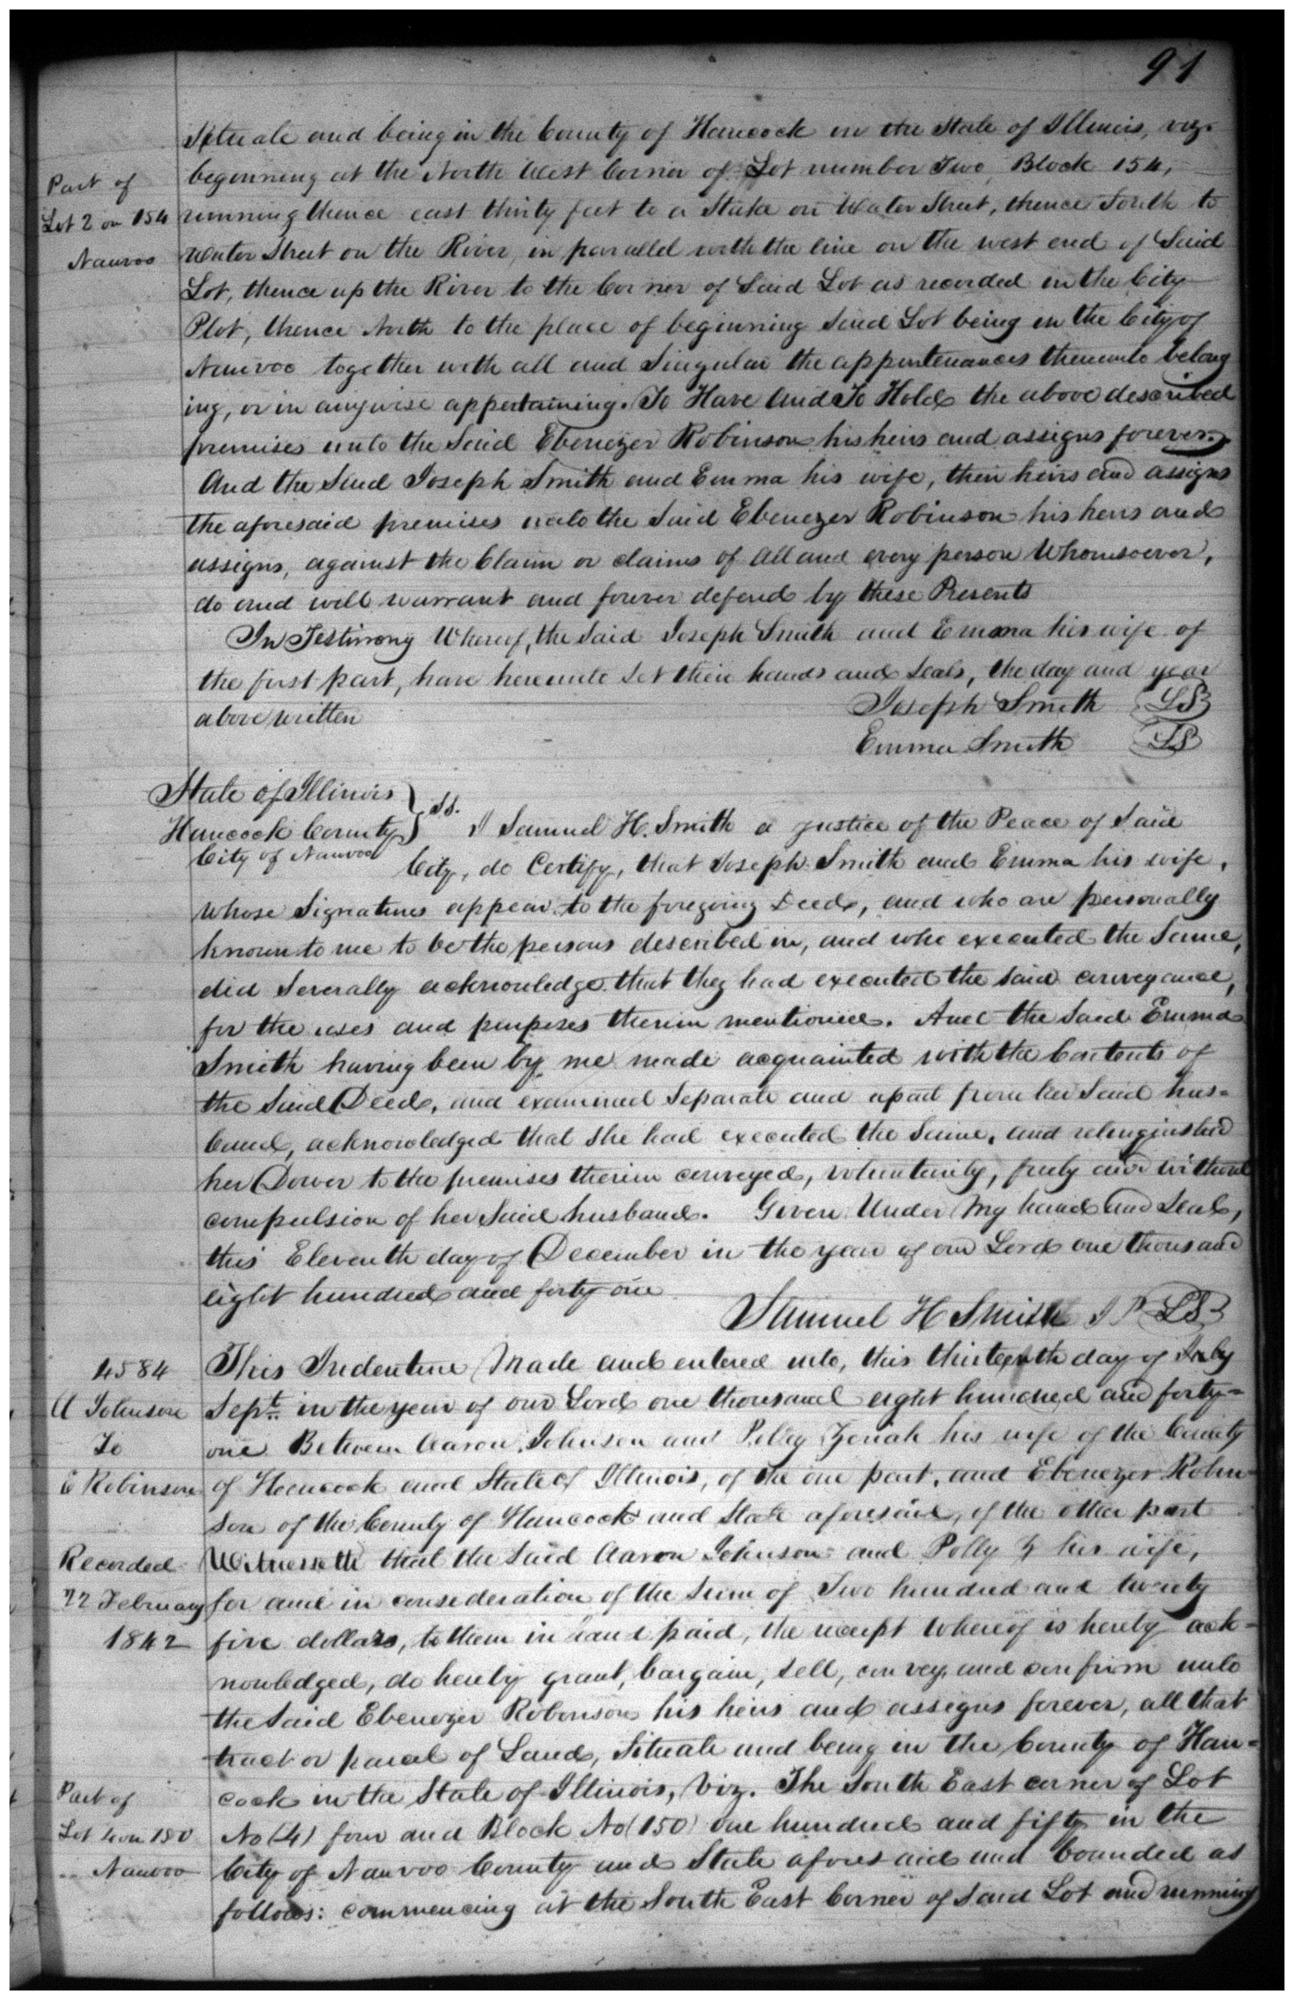 91
Situate and being in the County of Hancock in the State of Illinois, viz.
Part of
Lot 2 on 154
Nauvoo
beginning at the North West Corner of Lot number Two, Block 154,
running thence east thirty feet to a Stake on Water Street, thence South to
Water Street on the River, in parallel with the line on the west end of Said
Lot, thence up the River to the Corner of Said Lot as recorded in the City
Plot, thence North to the place of beginning Said Lot being in the City of
Nauvoo together with all and Singular the appurtenances thereunto belong
ing, or in anywise appertaining. To Have And To Hold the above described
premises unto the Said Ebenezer Robinson his heirs and assigns forever.
And the Said Joseph Smith and Emma his wife, their heirs and assigns
the aforesaid premises unto the Said Ebenezer Robinson his heirs and
assigns, against the Claim or claims of all and every person Whomsoever,
do and will warrant and forever defend by these Presents
In Testimony Whereof, the Said Joseph Smith and Emma his wife of
the first part, have hereunto Set their hands and Seals, the day and year
above written
Joseph Smith LS
Emma Smith LS
State of Illinois
Hancock County } SS.
City of Nauvoo
I Samuel H. Smith a Justice of the Peace of Said
City, do Certify, that Joseph Smith and Emma his wife,
whose Signatures appear to the foregoing Deed, and who are personally
known to me to be the persons described in, and who executed the Same,
did Severally acknowledge that they had executed the Said conveyance,
for the uses and purposes therein mentioned. And the Said Emma
Smith having been by me made acquainted with the Contents of
the Said Deed, and examined Separate and apart from her Said hus=
band, acknowledged that She had executed the Same, and relinquished
her Dower to the premises therein conveyed, voluntarily, freely and without
compulsion of her Said husband. Given Under My hand and Seal,
this Eleventh day of December in the year of our Lord one thousand
eight hundred and forty one
Samuel H Smith J P LS
4584
A Johnson
To
E Robinson
Recorded
22 February
1842
This Indenture Made and entered into, this thirteenth day of July
Sept. in the year of our Lord one thousand eight hundred and forty=
one Between Aaron Johnson and Polly Zeriah his wife of the County
of Hancock and State of Illinois, of the one part, and Ebenezer Robin=
son of the County of Hancock and State aforesaid, of the other part
Witnesseth that the Said Aaron Johnson and Polly Z his wife,
for and in consideration of the Sum of Two hundred and twenty
five dollars, to them in hand paid, the receipt whereof is hereby ack=
nowledged, do hereby grant, bargain, sell, convey and confirm unto
the Said Ebenezer Robinson his heirs and assigns forever, all that
tract or parcel of Land, Situate and being in the County of Han=
cock in the State of Illinois, viz. The South East corner of Lot
Part of
Lot 4 on 150
Nauvoo
No (4) four and Block No (150) one hundred and fifty in the
City of Nauvoo County and State aforesaid and bounded as
follows: commencing at the South East Corner of Said Lot and running